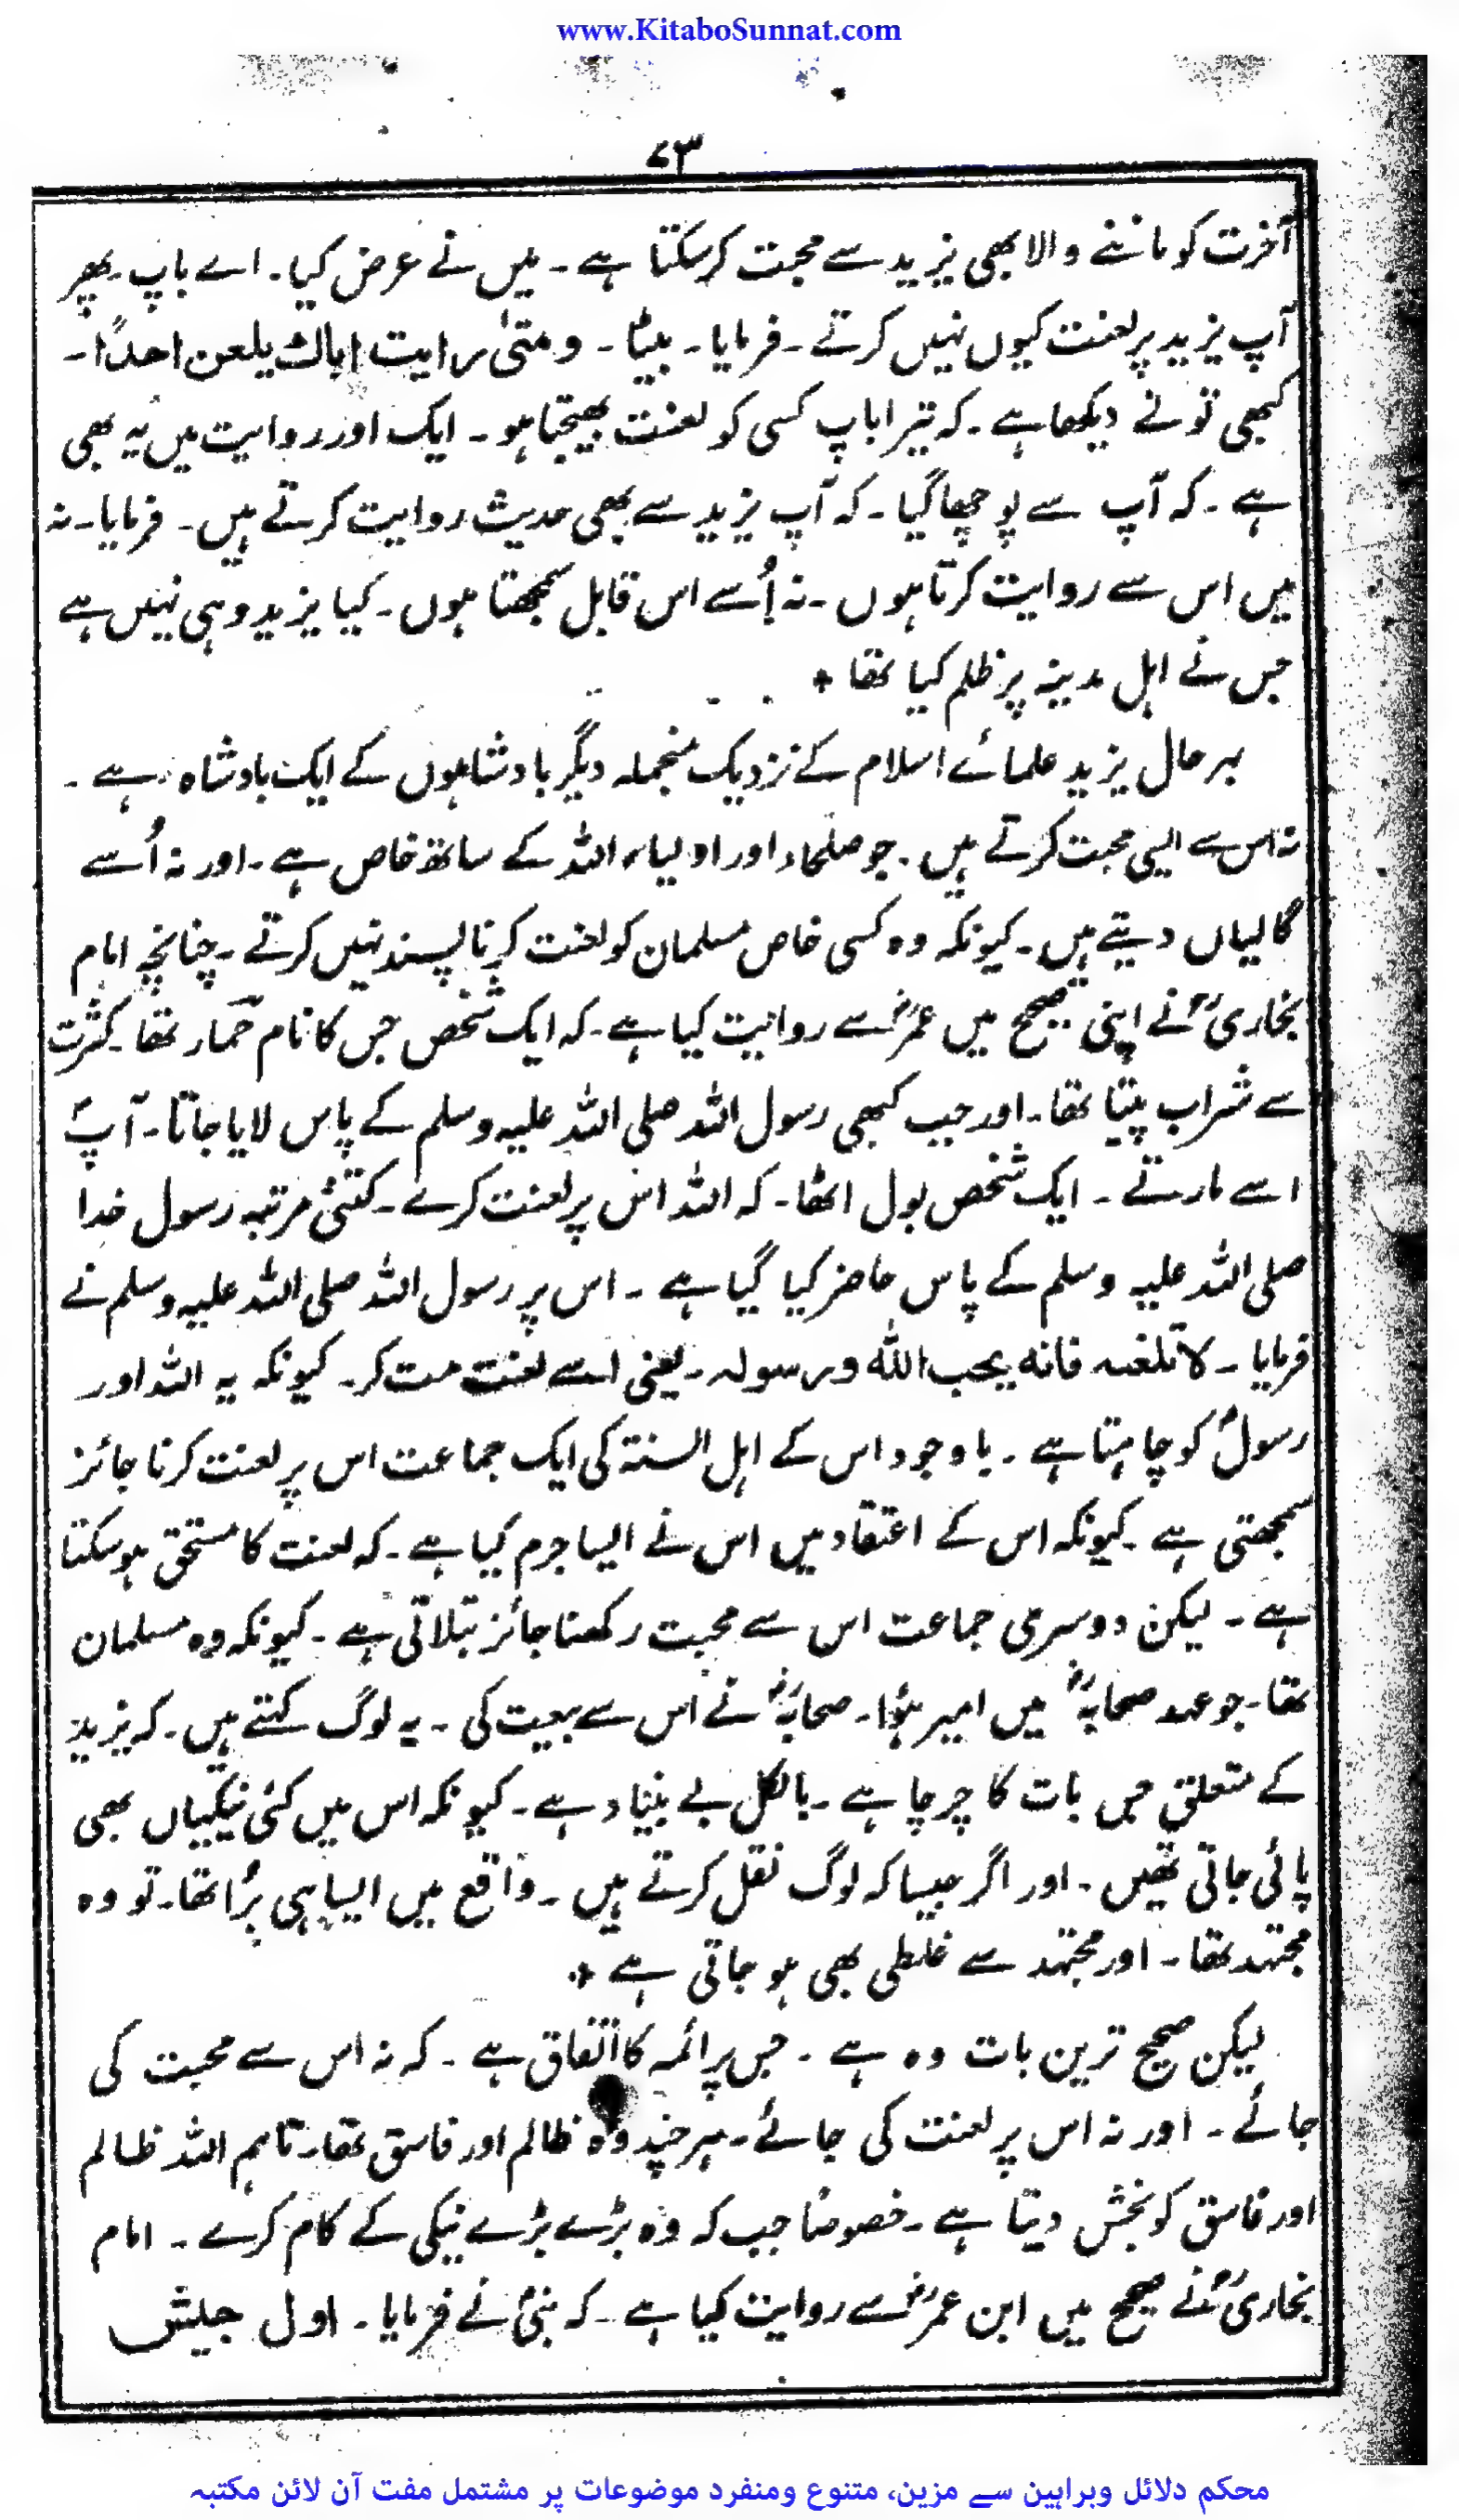 www.KitaboSunnat.com
۷۳
آخرت کو ماننے والا بھی یزید سے محبت کر سکتا ہے ۔ میں نے عرض کیا ۔ اے باپ پھر
آپ یزید پر لعنت کیوں نہیں کرتے ۔ فرمایا ۔ بیٹا ۔ ومتیٰ رایت اباك یلعن احدًا ۔
کبھی تو نے دیکھا ہے ۔ کہ تیرا باپ کسی کو لعنت بھیجتا ہو ۔ ایک اور روایت میں یہ بھی
ہے ۔ کہ آپ سے پوچھا گیا ۔ کہ آپ یزید سے بھی حدیث روایت کرتے ہیں ۔ فرمایا ۔ نہ
میں اس سے روایت کرتا ہوں ۔ نہ اُسے اس قابل سمجھتا ہوں ۔ کیا یزید وہی نہیں ہے
جس نے اہل مدینہ پر ظلم کیا تھا ٭
بہر حال یزید علمائے اسلام کے نزدیک منجملہ دیگر بادشاہوں کے ایک بادشاہ ہے ۔
نہ اس سے ایسی محبت کرتے ہیں ۔ جو صلحاء اور اولیاء اللہ کے ساتھ خاص ہے ۔ اور نہ اُسے
گالیاں دیتے ہیں ۔ کیونکہ وہ کسی خاص مسلمان کو لعنت کرنا پسند نہیں کرتے ۔ چنانچہ امام
بخاریؒ نے اپنی صحیح میں عمرؓ سے روایت کیا ہے ۔ کہ ایک شخص جس کا نام حمار تھا ۔ کثرت
سے شراب پیتا تھا ۔ اور جب کبھی رسول اللہ صلی اللہ علیہ وسلم کے پاس لایا جاتا ۔ آپؐ
اسے مارتے ۔ ایک شخص بول اٹھا ۔ کہ اللہ اس پر لعنت کرے ۔ کتنی مرتبہ رسول خدا
صلی اللہ علیہ وسلم کے پاس حاضر کیا گیا ہے ۔ اس پر رسول اللہ صلی اللہ علیہ وسلم نے
فرمایا ۔ لا تلعنہ فانه یحب الله ورسولہ ۔ یعنی اسے لعنت مت کر ۔ کیونکہ یہ اللہ اور
رسولؐ کو چاہتا ہے ۔ باوجود اس کے اہل السنۃ کی ایک جماعت اس پر لعنت کرنا جائز
سمجھتی ہے ۔ کیونکہ اس کے اعتقاد میں اس نے ایسا جرم کیا ہے ۔ کہ لعنت کا مستحق ہو سکتا
ہے ۔ لیکن دوسری جماعت اس سے محبت رکھنا جائز بتلاتی ہے ۔ کیونکہ وہ مسلمان
تھا ۔ جو عہد صحابہؓ میں امیر ہؤا ۔ صحابہؓ نے اس سے بیعت کی ۔ یہ لوگ کہتے ہیں ۔ کہ یزید
کے متعلق جس بات کا چرچا ہے ۔ بالکل بے بنیاد ہے ۔ کیونکہ اس میں کئی نیکیاں بھی
پائی جاتی تھیں ۔ اور اگر جیسا کہ لوگ نقل کرتے ہیں ۔ واقع میں ایسا ہی بُرا تھا ۔ تو وہ
مجتہد تھا ۔ اور مجتہد سے غلطی بھی ہو جاتی ہے ٭
لیکن صحیح ترین بات وہ ہے ۔ جس پر ائمہ کا اتفاق ہے ۔ کہ نہ اس سے محبت کی
جائے ۔ اور نہ اس پر لعنت کی جائے ۔ ہر چند وہ ظالم اور فاسق تھا ۔ تاہم اللہ ظالم
اور فاسق کو بخش دیتا ہے ۔ خصوصًا جب کہ وہ بڑے بڑے نیکی کے کام کرے ۔ امام
بخاریؒ نے صحیح میں ابن عمرؓ سے روایت کیا ہے ۔ کہ نبیؐ نے فرمایا ۔ اول جیش
محکم دلائل وبراہین سے مزین، متنوع ومنفرد موضوعات پر مشتمل مفت آن لائن مکتبہ